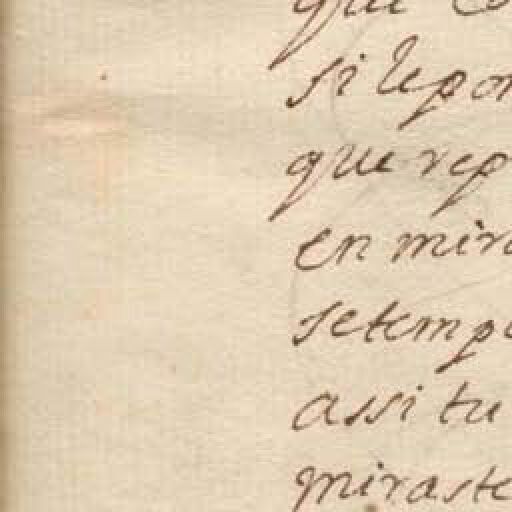 que co
si lepon
que rep
en mira
setempe
assi tu
miraste